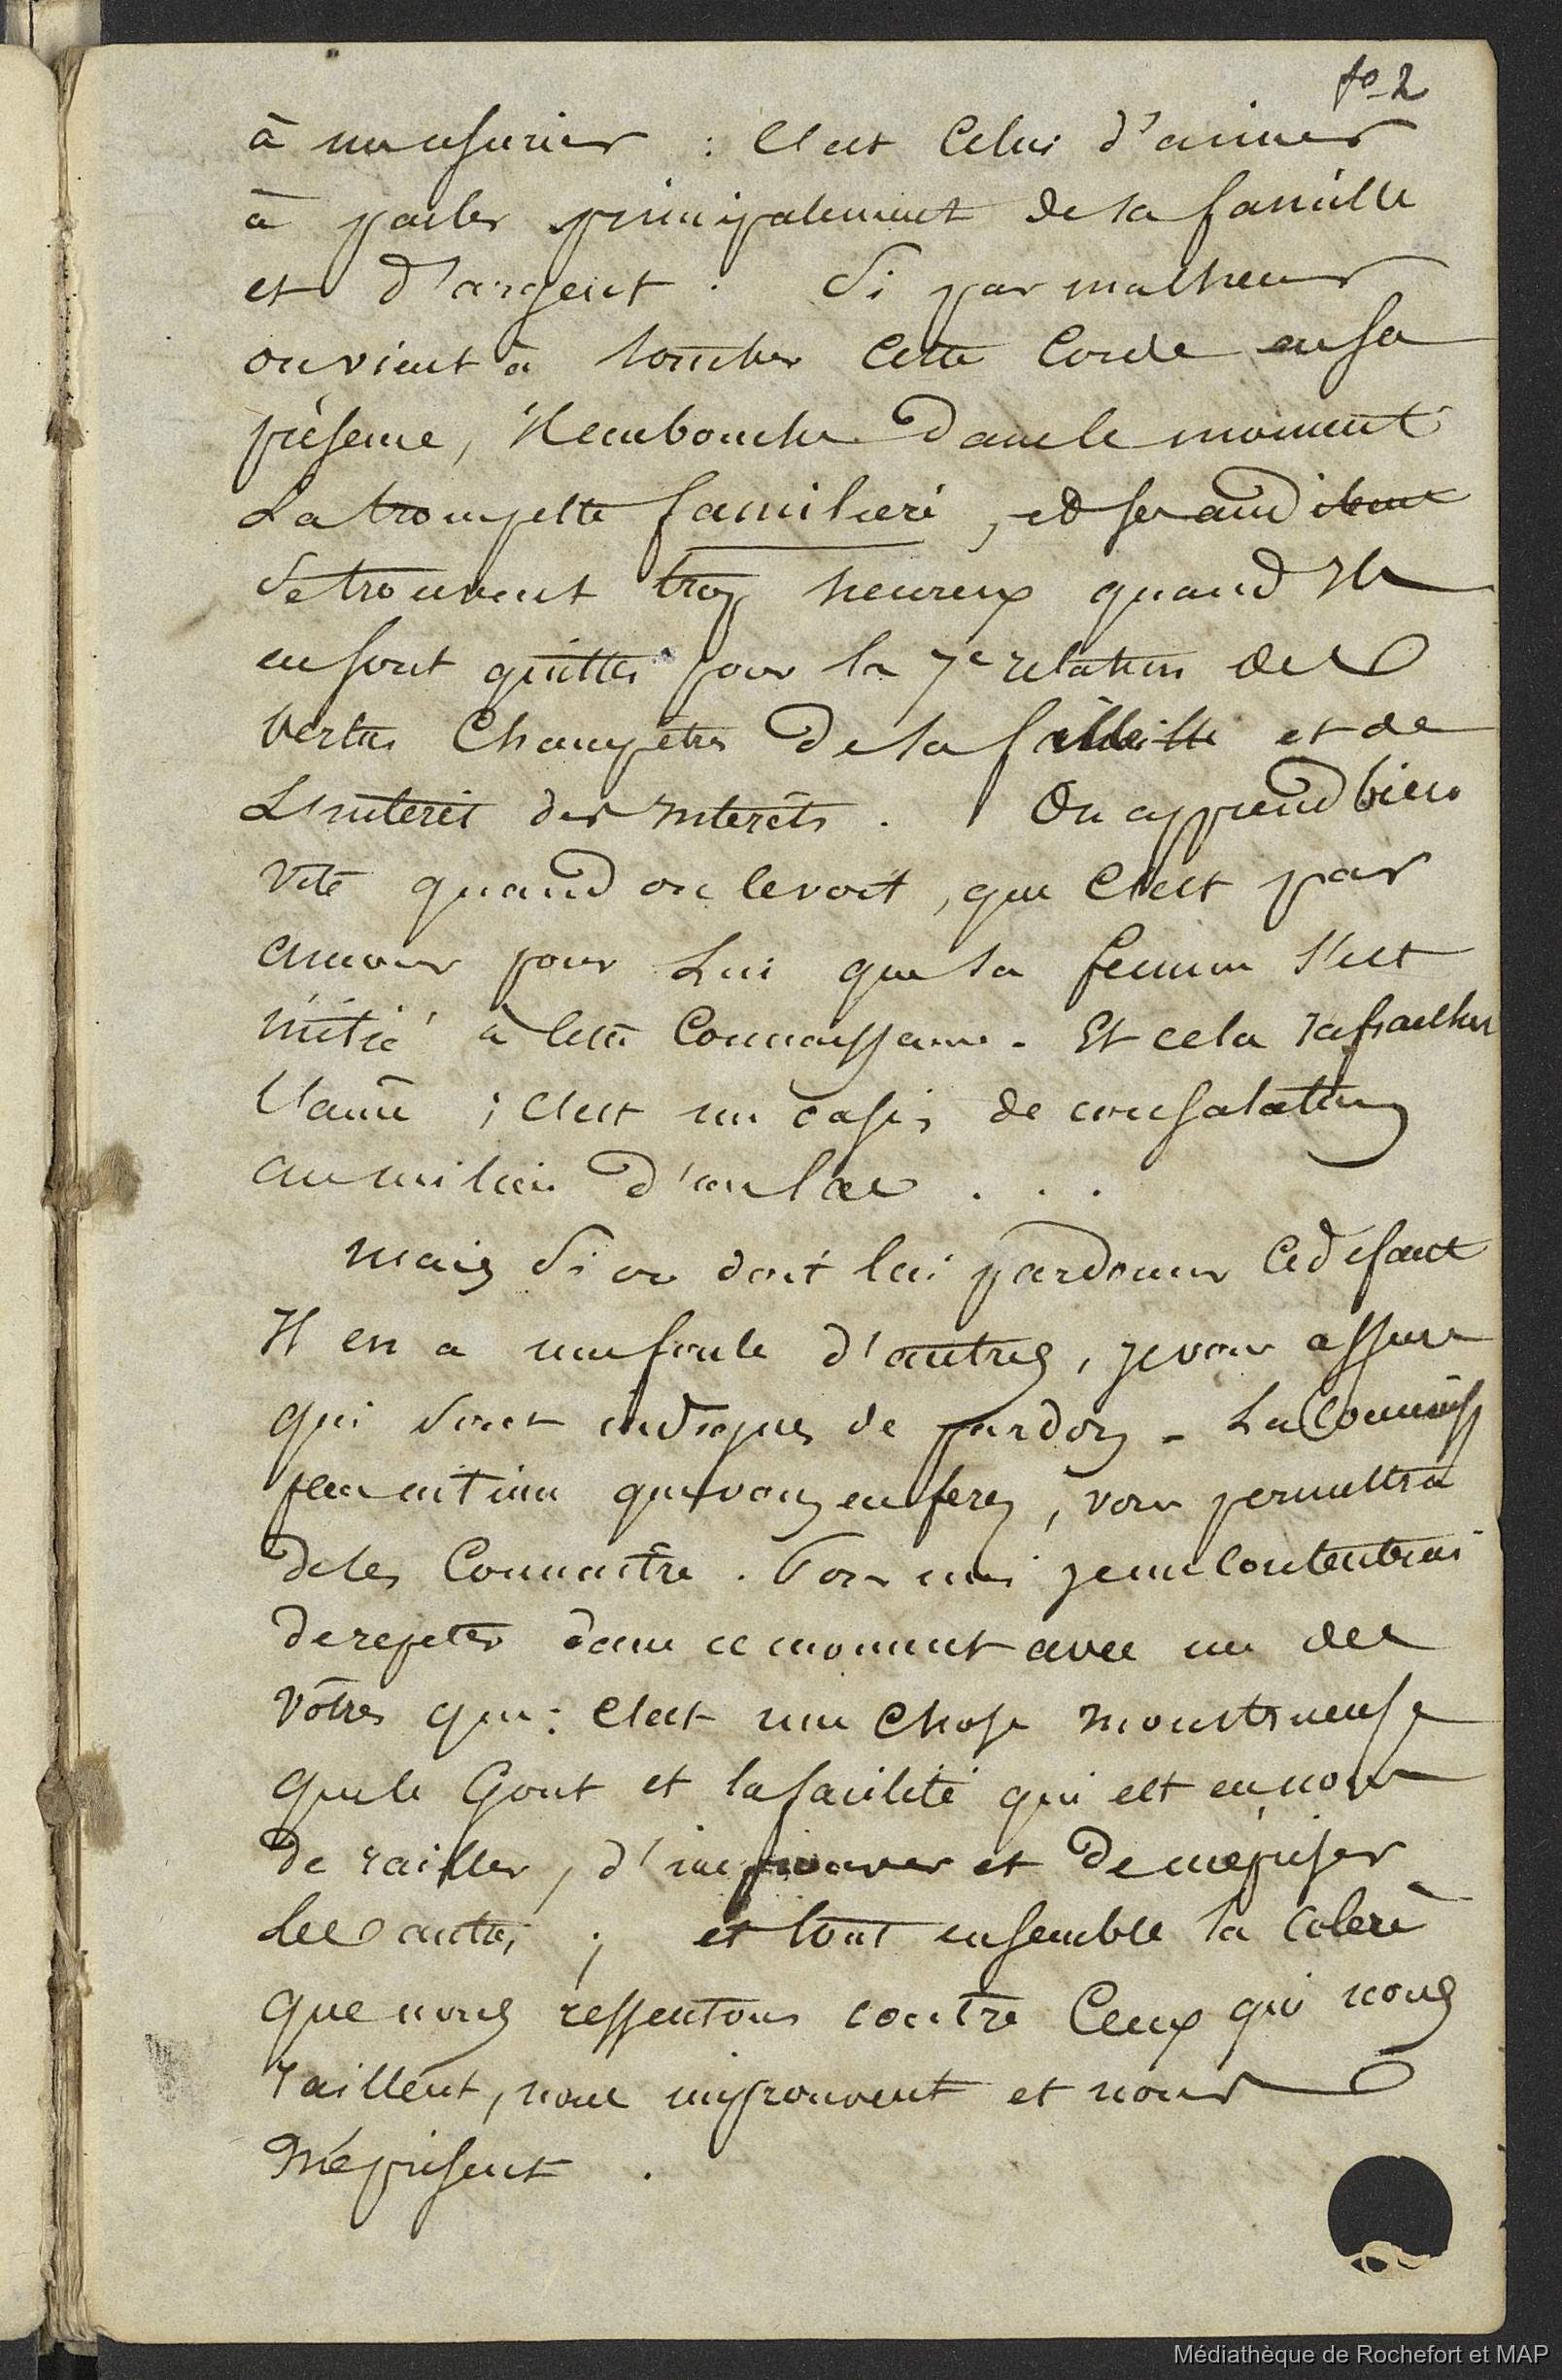 fo 2
à un usurier : C'est Celui d'aimer
à parler principalement de sa famille
et d'argent . Si par malheur
on vient à toucher Cette Corde en sa
présence, Il embouche dans le moment
La trompette familière, et ses auditeurs
Se trouvent trop heureux quand Ils
en sont quittes pour la 7e relation des
Vertus Champêtres de sa famille et de
L'interêt des Interêts . On apprend bien
vite quand on le voit, que C'est par
amour pour Lui que sa femme s'est
initié à cette Connaissance . Et cela rafraichit
l'âme ; C'est un oasis de consolation
au milieu d'un lac . . .
Mais Si on doit lui pardonner Ce défaut
Il en a une foule d'autres, je vous assure
qui Sont indignes de pardon - La Connaiss
que vous en ferez, vous permettra
de les Connaître . Pour moi je me contenterai
de répéter dans ce moment avec un des
Vôtres que : C'est une Chose monstrueuse
que le Gout et la facilité qui est en nous
de railler, d'improuver et de mépriser
Les autres ; et tout ensemble la colère
que nous ressentons contre Ceux qui nous
raillent, nous improuvent et nous
Méprisent .
Médiathèque de Rochefort et MAP